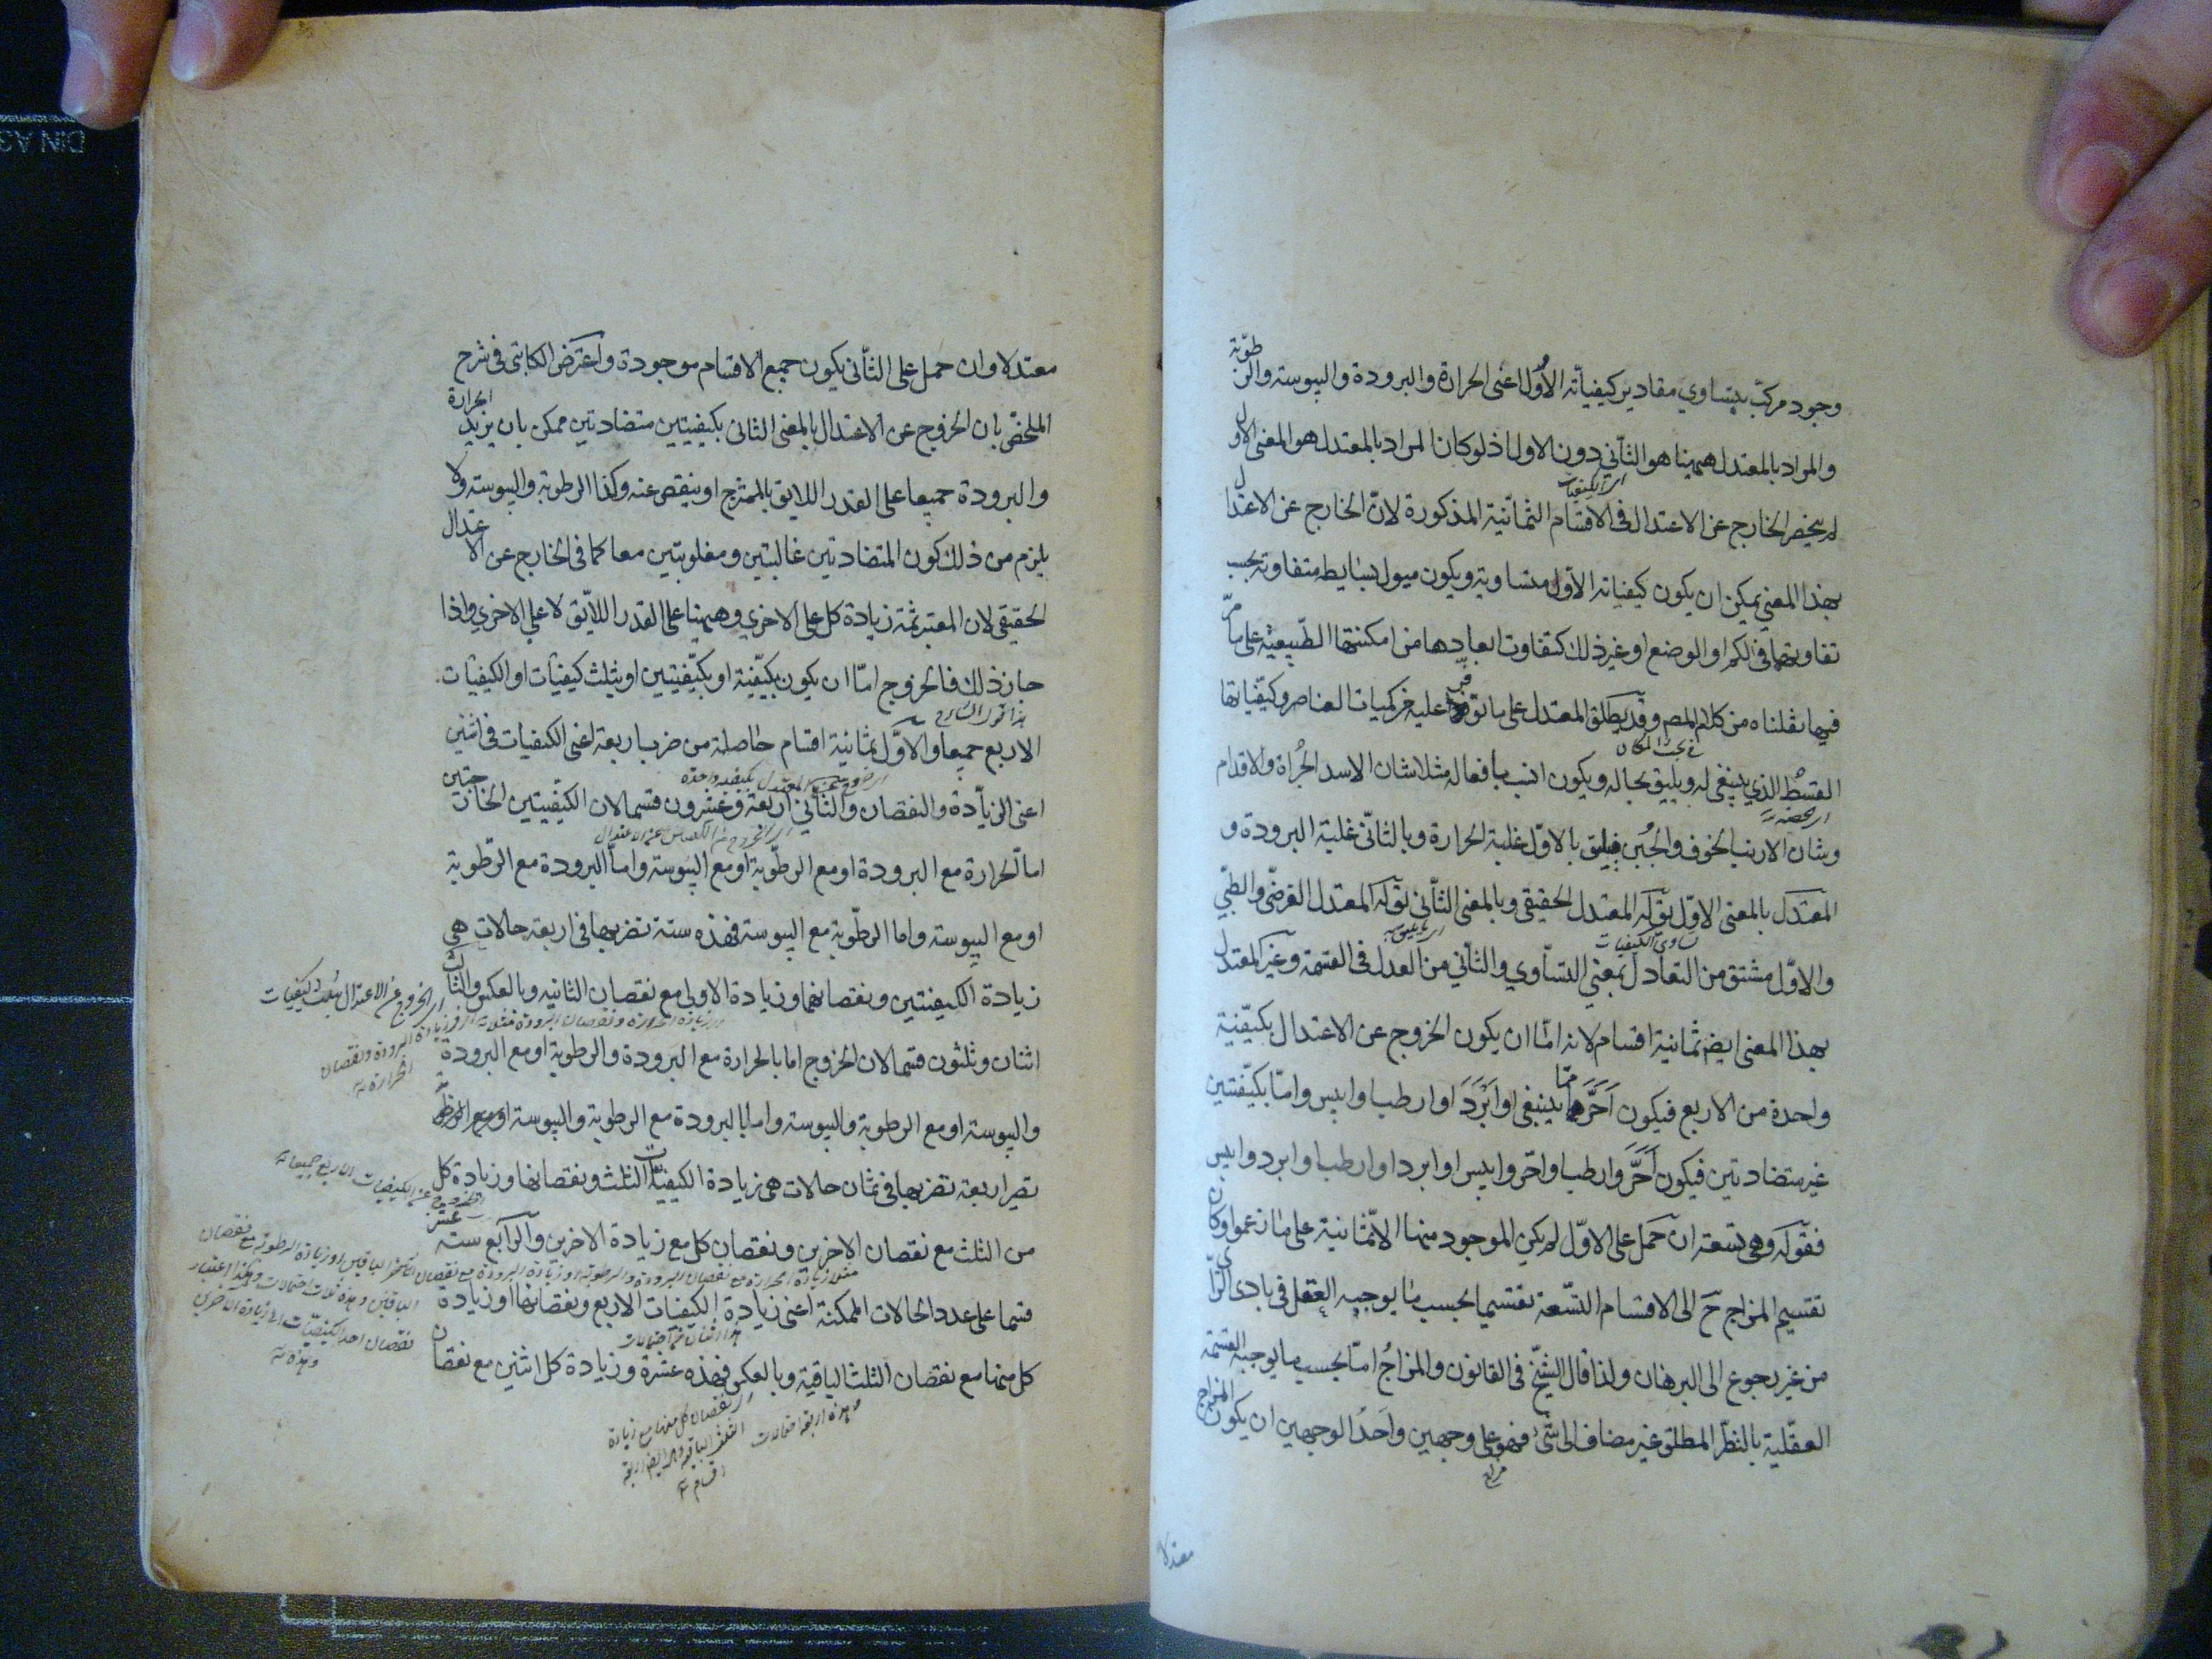 وجود مركب يتساوي مقادير كيفياته الأول اعنى الحرارة والبرودة واليبوسة والرطوبة
والمراد بالمعتدل ههنا هو الثاني دون الاول اذ لو كان المراد بالمعتدل هو المعنى الاول
لم ينحصر الخارج عن الاعتدال فى الاقسام الثمانية المذكورة لان الخارج عن الاعتدال
بهذا المعني يمكن ان يكون كيفياته الاول متساوية ويكون ميول بسايطه متفاوتة بحسب
تفاوتها فى الكم او الوضع او غير ذلك كتفاوت ابعادها من امكنتها الطبيعية على ما مر
فيما نقلناه من كلام المصم وقد يطلق المعتدل على ما توفر عليه من كميات العناصر وكيفياتها
فى بحث المكان
القسط الذي ينبغى له ويليق بحاله ويكون انسب بأفعاله مثلا شان الاسد الجرأة والاقدام
وشان الارنب الخوف والجبن فيليق بالاول غلبة الحرارة وبالثاني غلبة البرودة و
المعتدل بالمعنى الاول قوله المعتدل الحقيقى وبالمعنى الثاني قوله المعتدل الفرضى والطبى
تساوى الكيفيات
والاول مشتق من التعادل بمعني التساوي والثاني من العدل فى القسمة وغير المعتدل
بهذا المعنى ايضم ثمانية اقسام لانه اما ان يكون الخروج عن الاعتدال بكيفية
واحدة من الاربع فيكون احر مما ينبغى او ابرد او ارطب او ايبس واما بكيفيتين
غير متضادتين فيكون احر وارطب او احر وايبس او ابرد وارطب او ابرد وايبس
فقوله وهى تسعة ان حمل على الاول لم يكن الموجود منها الا ثمانية على ما زعموا وكان
تقسيم المزاج ح الى الاقسام التسعة تقسيما بحسب ما يوجبه العقل فى بادى الرأى
من غير رجوع الى البرهان ولذا قال الشيخ فى القانون والمزاج اما بحسب ما يوجبه القسمة
العقلية بالنظر المطلق غير مضاف الى شئ فهو على وجهين واحد الوجهين ان يكون المزاج
معتدلا
معتدلا وان حمل على الثاني يكون جميع الاقسام موجودة واعترض الكاتبى فى شرح
الملخص بان الخروج عن الاعتدال بالمعنى الثانى بكيفيتين متضادتين ممكن بان يزيد الحرارة
والبرودة جميعا على القدر اللايق بالممتزج او ينقص عنه وكذا الرطوبة واليبوسة ولا
يلزم من ذلك كون المتضادتين غالبتين ومغلوبتين معا كما فى الخارج عن الاعتدال
الحقيقى لان المعتبر ثمة زيادة كل على الاخري وههنا على القدر اللايق لا على الاخري واذا
جاز ذلك فالخروج اما ان يكون بكيفية او بكيفيتين او بثلث كيفيات او الكيفيات
هذا قول الشارح
الاربع جميعا والاول ثمانية اقسام حاصلة من ضرب اربعة اعنى الكيفيات فى اثنين
اعنى الزيادة والنقصان والثاني اربعة وعشرون قسما لان الكيفيتين الخارجتين
اما الحرارة مع البرودة او مع الرطوبة او مع اليبوسة واما البرودة مع الرطوبة
او مع اليبوسة واما الرطوبة مع اليبوسة فهذه ستة تضربها فى اربعة حالات هى
زيادة الكيفيتين ونقصانهما وزيادة الاولى مع نقصان الثانيه وبالعكس والثالث
اى الخروج عن الاعتدال بثلث كيفيات
اثنان وثلثون قسما لان الخروج اما بالحرارة مع البرودة والرطوبة او مع البرودة
واليبوسة او مع الرطوبة واليبوسة واما بالبرودة مع الرطوبة واليبوسة
تصير اربعة تضربها فى ثمان حالات هى زيادة الكيفيات الثلث ونقصانها وزيادة كل
من الثلث مع نقصان الاخرين ونقصان كل مع زيادة الاخرين والرابع ستة عشر
قسما على عدد الحالات الممكنة اعنى زيادة الكيفيات الاربع ونقصانها او زيادة
كل منها مع نقصان الثلث الباقية وبالعكس فهذه عشرة وزيادة كل اثنين مع نقصان
اى نقصان كل منها مع زيادة